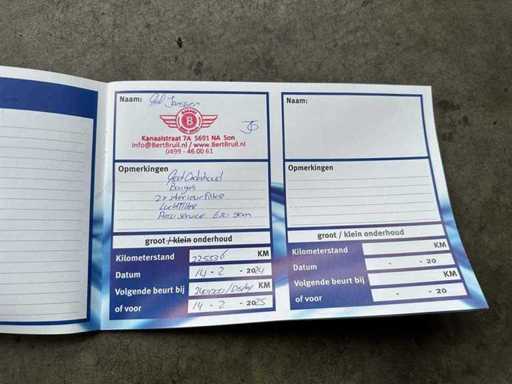 Naam:
Janssen
B
Kanaalstraat 7A 5691 NA Son
info@BertBruil.nl / www.BertBruil.nl
0499 - 46 00 61
Opmerkingen
Groot Onderhoud
Bougies
2x interieurfilter
Luchtfilter
groot / klein onderhoud
Kilometerstand KM
Datum 14 - 2 - 2024
Volgende beurt bij KM
of voor 14 - 2 - 2025
Naam:
Opmerkingen
groot / klein onderhoud
Kilometerstand KM
Datum - - 20
Volgende beurt bij KM
of voor - - 20